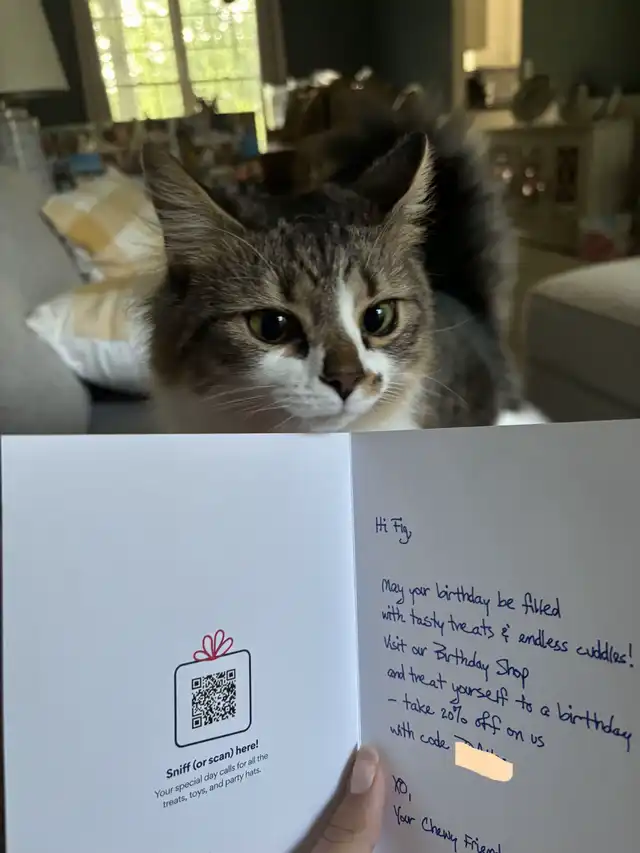 Sniff (or scan) here!
Your special day calls for all the
treats, toys, and party hats.
Hi Fig,
May your birthday be filled
with tasty treats & endless cuddles!
Visit our Birthday Shop
and treat yourself to a birthday
- take 20% off on us
with code
XO,
Your Chewy Friends